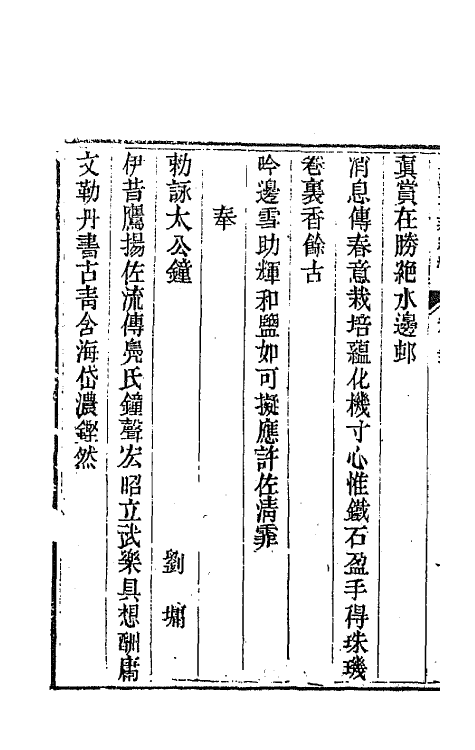 真賞在勝絶水邊邨
消息傳春意栽培蘊化機寸心惟鐵石盈手得珠璣
卷裏香餘古
吟邊雪助輝和鹽如可擬應許佐清霏
奉
勅詠太公鐘　劉墉
伊昔鷹揚佐流傳鳧氏鐘聲宏昭立武樂具想酬庸
文勒丹書古青含海岱濃鏗然